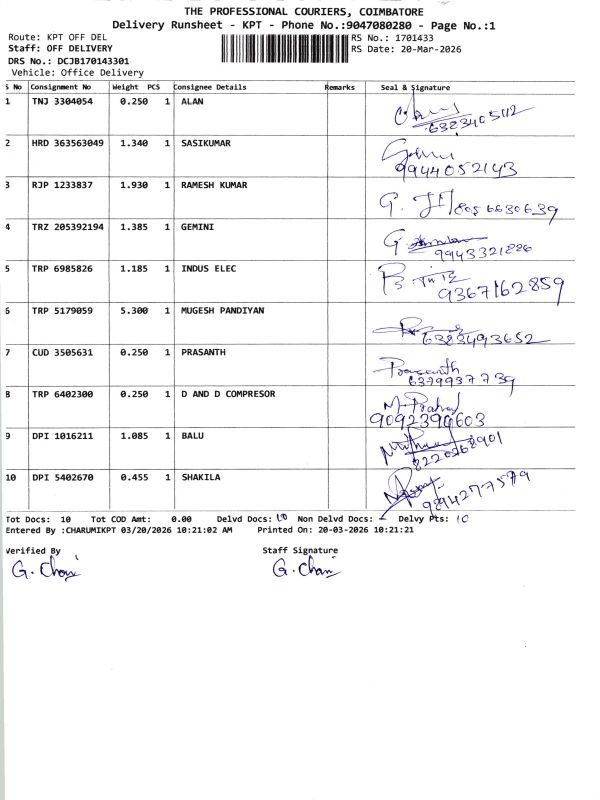 THE PROFESSIONAL COURIERS, COIMBATORE
Delivery Runsheet - KPT - Phone No.:9047080280 - Page No.:1
Route: KPT OFF DEL
RS No.: 1701433
Staff: OFF DELIVERY
RS Date: 20-Mar-2026
DRS No.: DCJB170143301
Vehicle: Office Delivery
S No Consignment No Weight PCS Consignee Details Remarks Seal & Signature
1 TNJ 3304054 0.250 1 ALAN
6323405112
2 HRD 363563049 1.340 1 SASIKUMAR
9944052143
3 RJP 1233837 1.930 1 RAMESH KUMAR
G. 8056630639
4 TRZ 205392194 1.385 1 GEMINI
G
5 TRP 6985826 1.185 1 INDUS ELEC
9367162859
6 TRP 5179059 5.300 1 MUGESH PANDIYAN
6383493652
7 CUD 3505631 0.250 1 PRASANTH
Prasanth
6379937739
8 TRP 6402300 0.250 1 D AND D COMPRESOR
9092390603
9 DPI 1016211 1.085 1 BALU
8220268901
10 DPI 5402670 0.455 1 SHAKILA
9894277579
Tot Docs: 10 Tot COD Amt: 0.00 Delvd Docs: 10 Non Delvd Docs: - Delvy Pts: 10
Entered By :CHARUMIKPT 03/20/2026 10:21:02 AM Printed On: 20-03-2026 10:21:21
Verified By Staff Signature